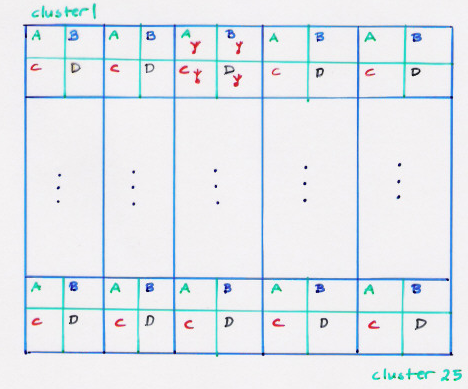 cluster 1
A B A B A Y B Y A B A B
C D C D C Y D Y C D C D
A B A B A B A B A B
C D C D C D C D C D
cluster 25